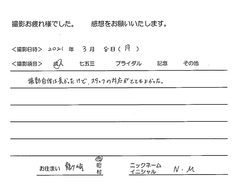 撮影お疲れ様でした。　感想をお願いいたします。
<撮影日時> 2021 年 3 月 8 日 (月)
<撮影項目> 成人 七五三 ブライダル 記念 その他
撮影自体は長かったけど、スタッフの対応がとてもよかった。
お住まい 龍ヶ崎 市 町 村 ニックネーム イニシャル N・M